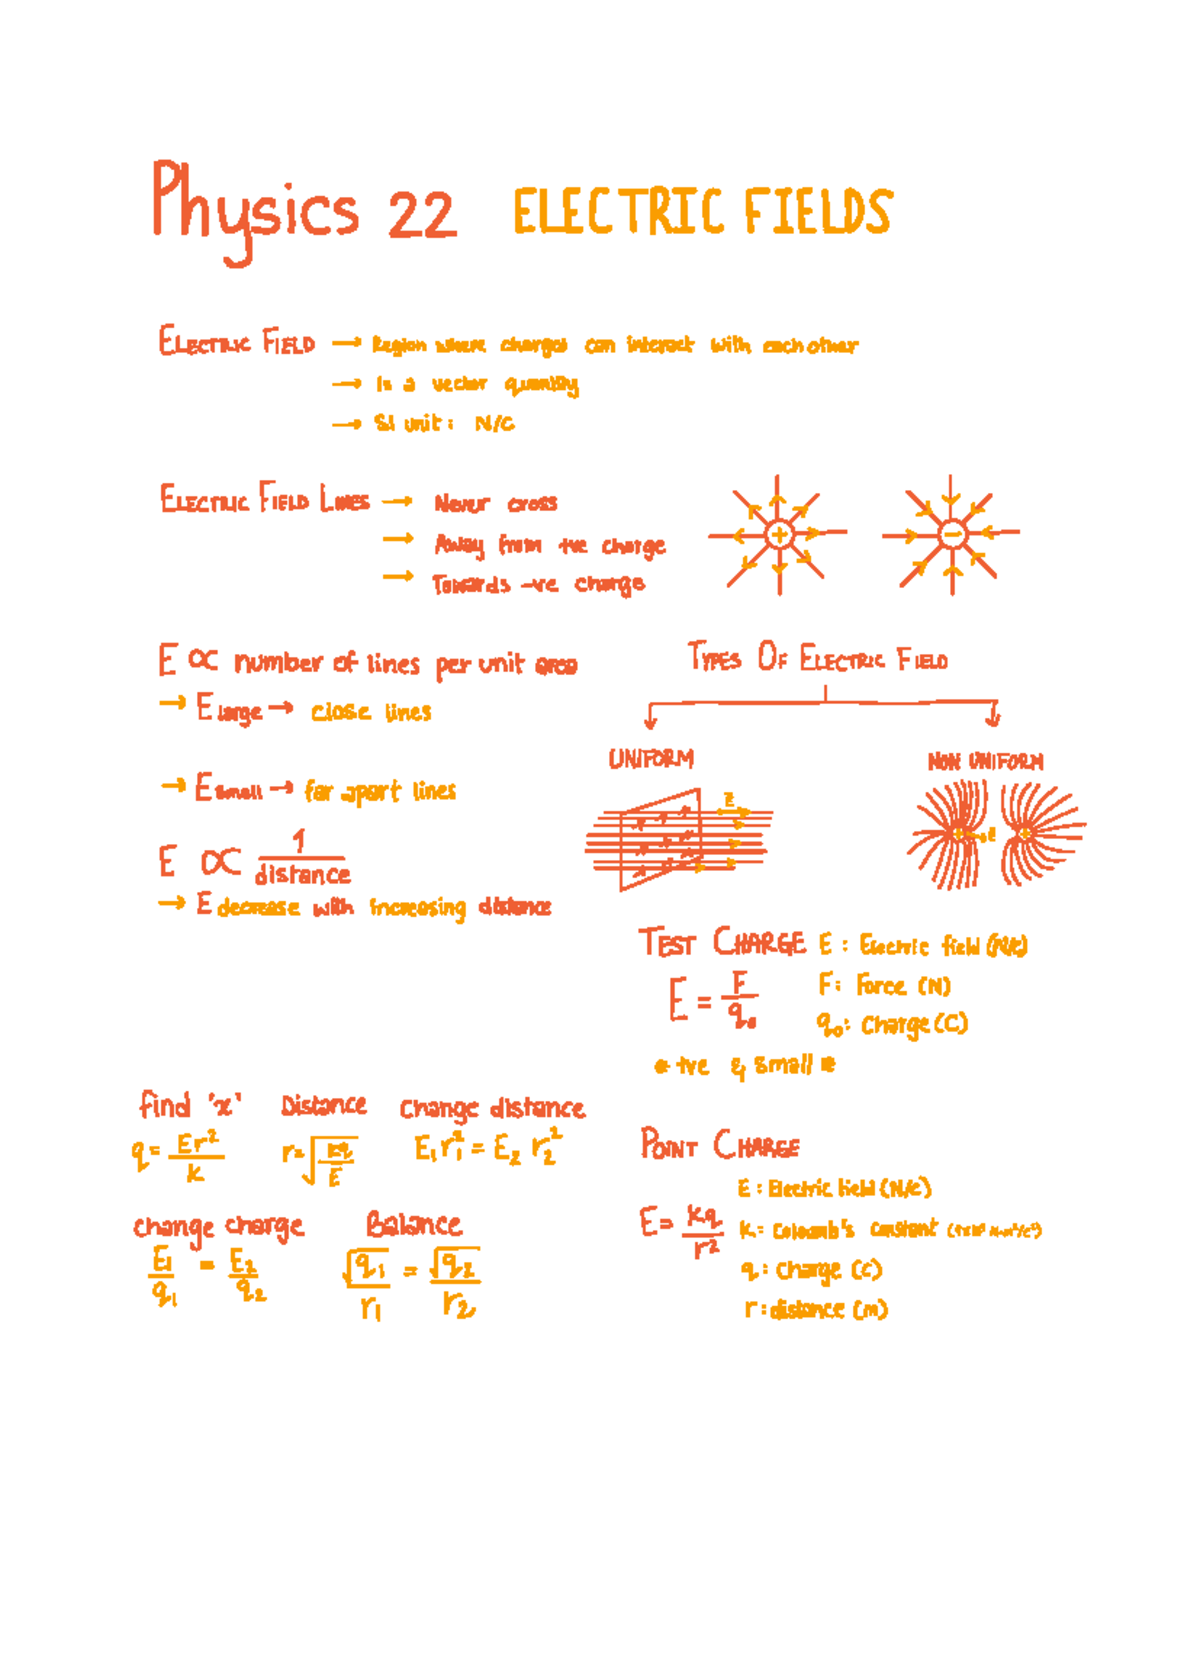 Physics 22 ELECTRIC FIELDS
ELECTRIC FIELD → Region where charges can interact with each other
→ Is a vector quantity
→ SI unit: N/C
ELECTRIC FIELD LINES → Never cross
→ Away from +ve charge
→ Towards -ve charge
+
-
E ∝ number of lines per unit area
→ E large → close lines
→ E small → far apart lines
E ∝ 1/distance
→ E decrease with increasing distance
TYPES OF ELECTRIC FIELD
UNIFORM
E
NON UNIFORM
+ E +
TEST CHARGE E: Electric field (N/C)
E = F/q₀ F: Force (N)
q₀: Charge (C)
* +ve & small *
find 'x' Distance Change distance
q = Er²/k r = √(kq/E) E₁r₁² = E₂r₂²
change charge Balance
E₁/q₁ = E₂/q₂ √q₁/r₁ = √q₂/r₂
POINT CHARGE
E: Electric field (N/C)
E = kq/r² k = Coloumb's constant (9x10⁹ N·m²/C²)
q: Charge (C)
r: distance (m)